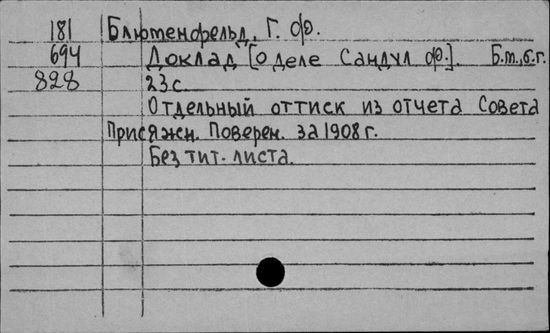 181 Блюменфельд, Г. Ф.
694 Доклад [о деле Сандул Ф.]. Б.m., б.г.
828 23 с.
Отдельный оттиск из отчета Совета
Присяжн. Поверен. за 1908 г.
Без тит. листа.